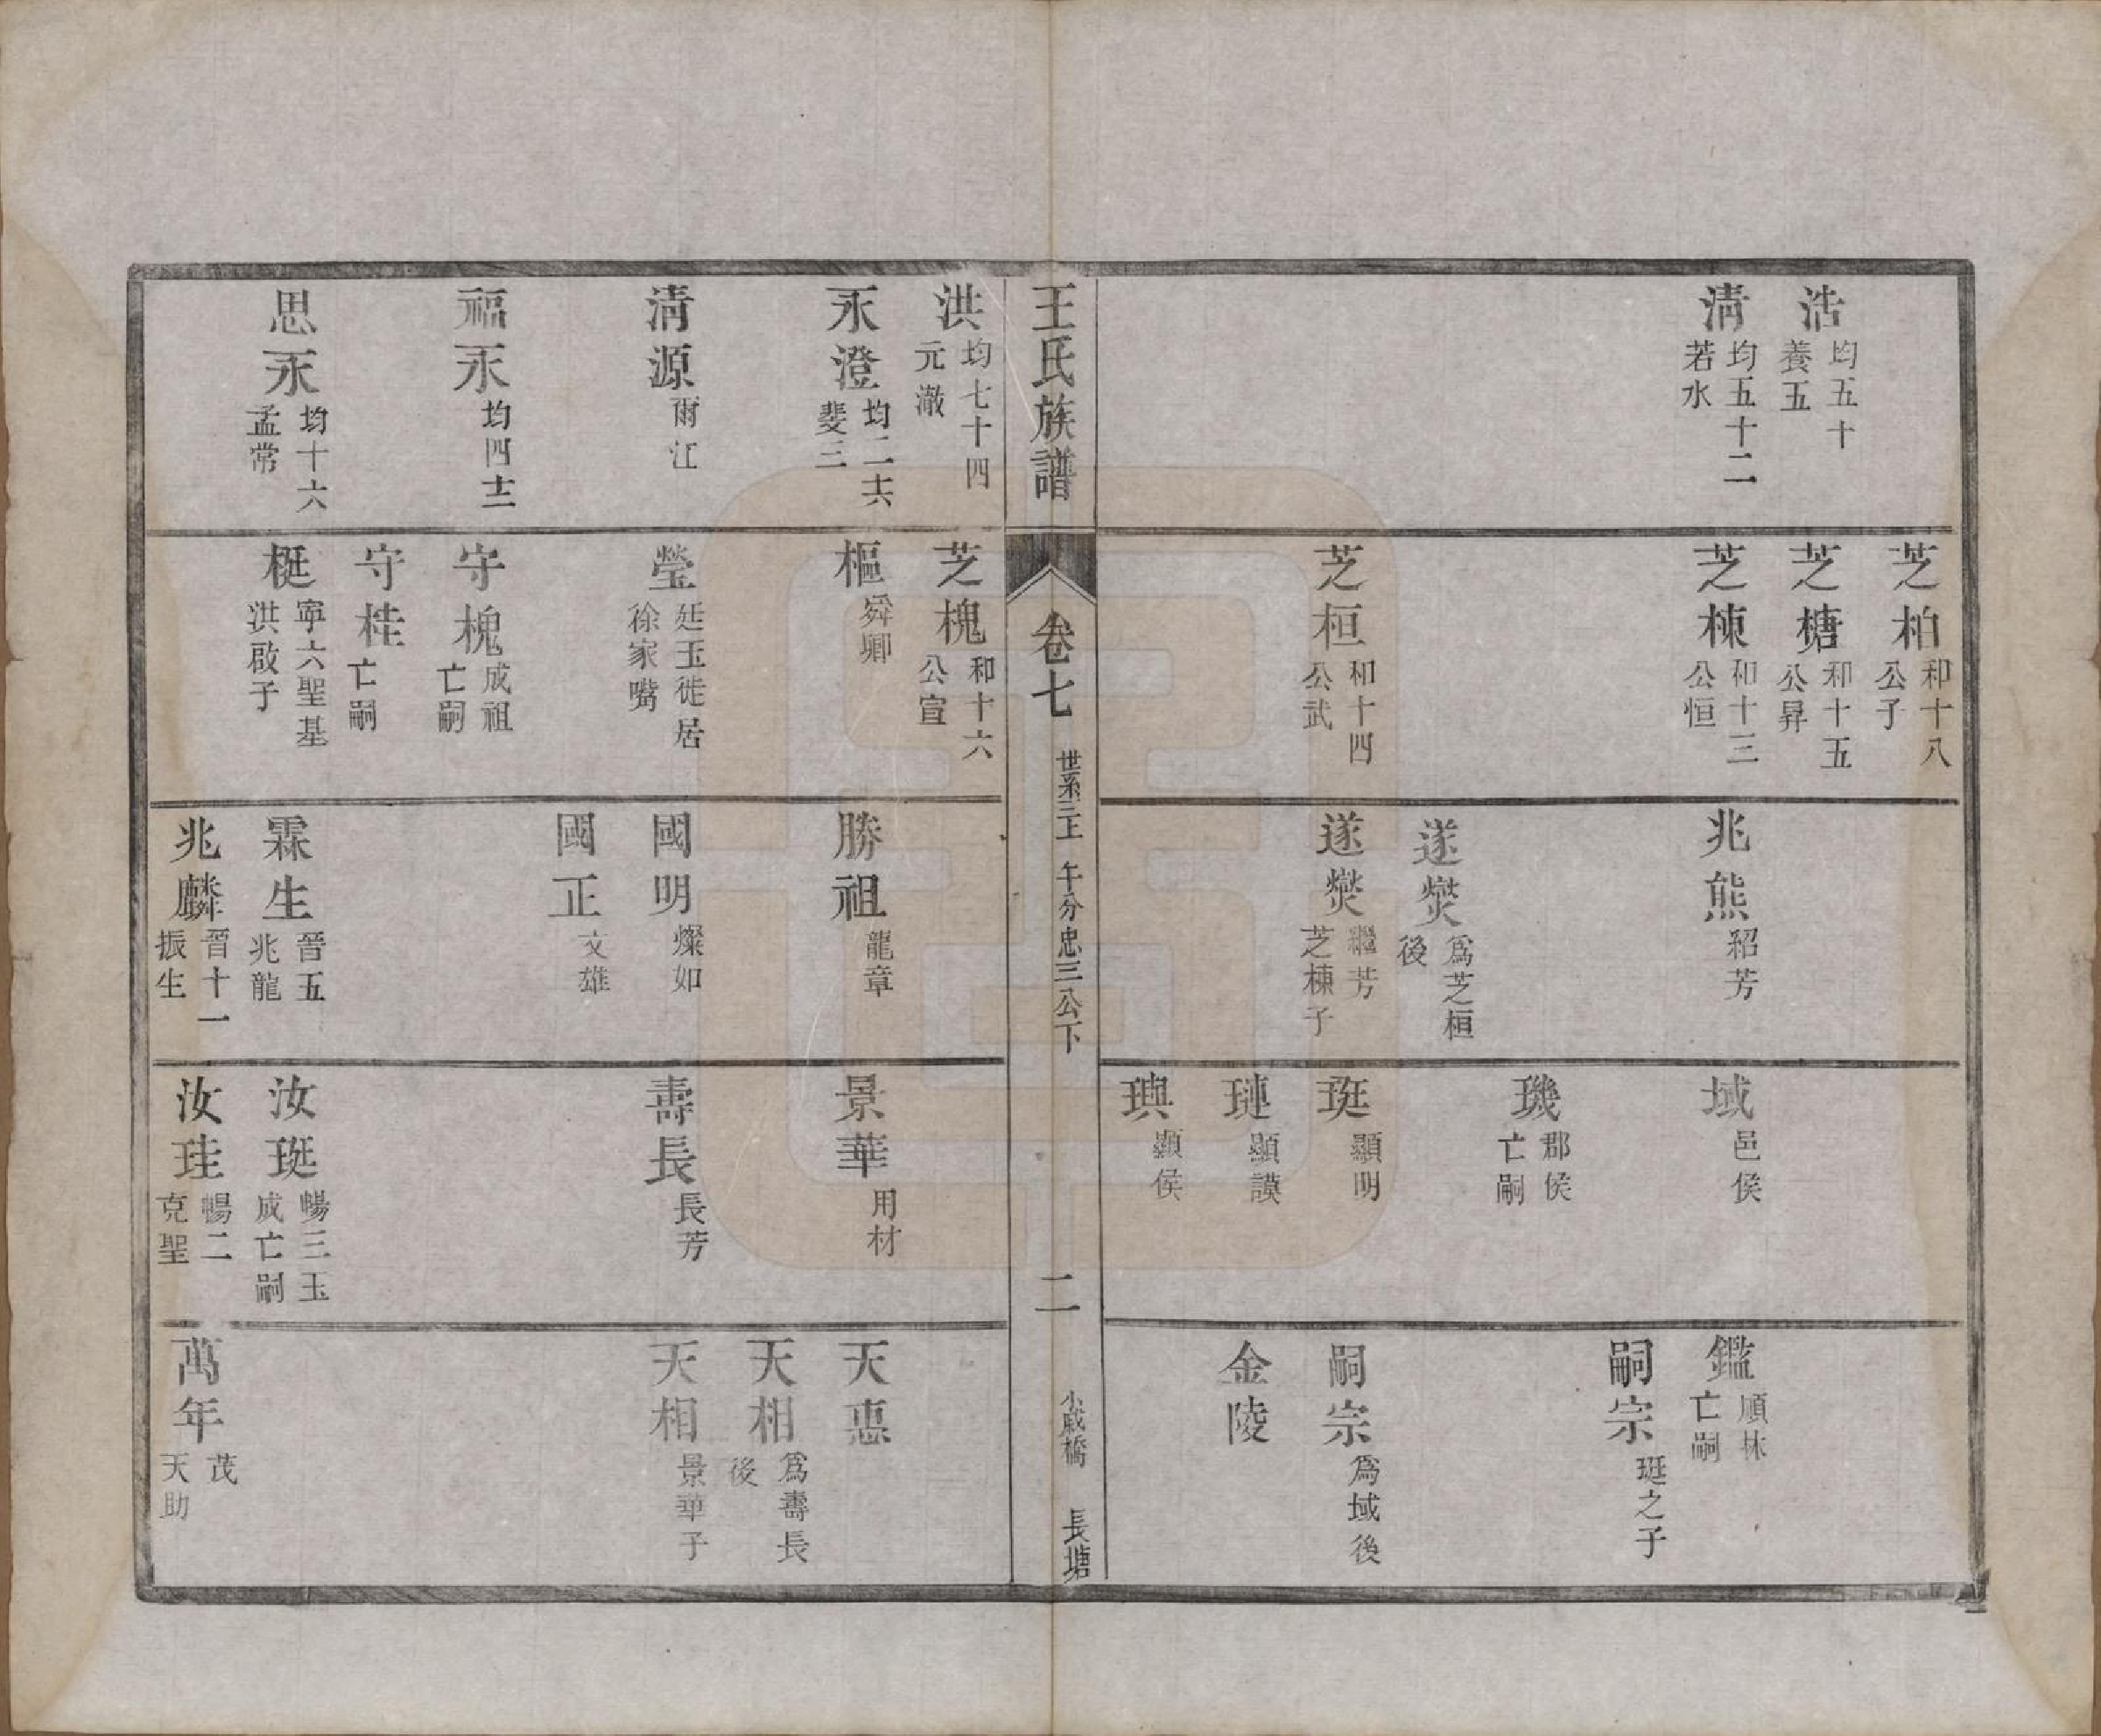 浩 均五十 養五
淸 均五十二 若水
芝柏 和十八 公子
芝榶 和十五 公昇
芝棟 和十三 公恒
芝桓 和十四 公武
兆熊 紹芳
遂爕 爲芝桓 後
遂爕 繼芳 芝棟子
域 邑侯
璣 郡侯 亡嗣
珽 顯明
璉 顯謨
璵 顯侯
鑑 順林 亡嗣
嗣宗 珽之子
嗣宗 爲域後
金陵
王氏族譜
卷七
世系三上 午分忠三公下
二
小戚橋 長塘
洪 均七十四 元澈
永澄 均二十六 斐三
淸源 爾江
福永 均四十二
思永 均十六 孟常
芝槐 和十六 公宣
樞 舜卿
瑩 廷玉徙居 徐家嘴
守槐 成祖 亡嗣
守桂 亡嗣
梃 寧六聖基 洪啟子
勝祖 龍章
國明 燦如
國正 文雄
霖生 晉五 兆龍
兆麟 晉十一 振生
景華 用材
壽長 長芳
汝珽 暢三玉 成亡嗣
汝珪 暢二 克聖
天惠
天相 爲壽長 後
天相 景華子
萬年 茂 天助